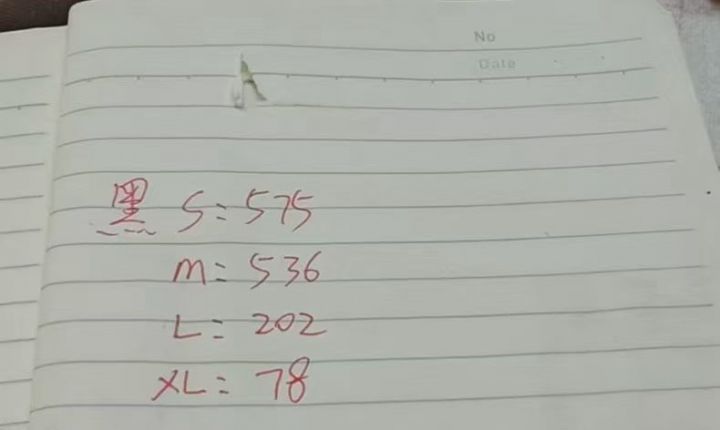 No
Date
黑 S=575
M=536
L=202
XL=78